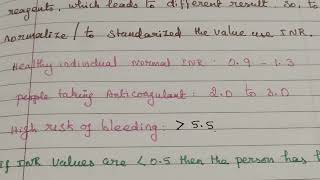 reagents, which leads to different result. So, to
normalize / to standarized the value use INR.
Healthy individual normal INR: 0.9 - 1.3
people taking Anticoagulant: 2.0 to 3.0
High risk of bleeding: > 5.5
If INR values are < 0.5 then the person has